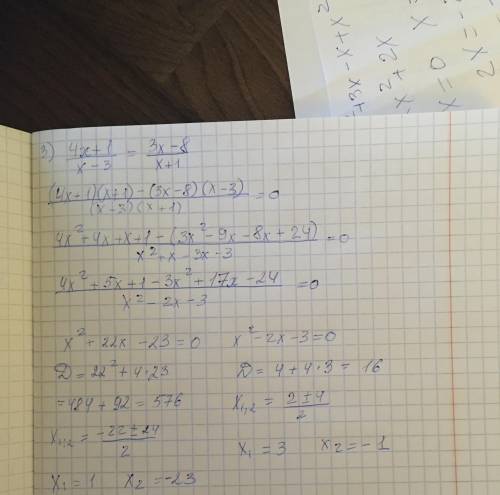 3) (4x+1)/(x-3) = (3x-8)/(x+1)
((4x+1)(x+1)-(3x-8)(x-3))/((x-3)(x+1)) =0
(4x²+4x+x+1-(3x²-9x-8x+24))/(x²+x-3x-3) =0
(4x²+5x+1-3x²+17x-24)/(x²-2x-3) =0
x²+22x-23=0 x²-2x-3=0
D=22²+4·23 D=4+4·3=16
=484+92=576 x₁,₂=(2±4)/2
x₁,₂=(-22±24)/2 x₁=3 x₂=-1
x₁=1 x₂=-23